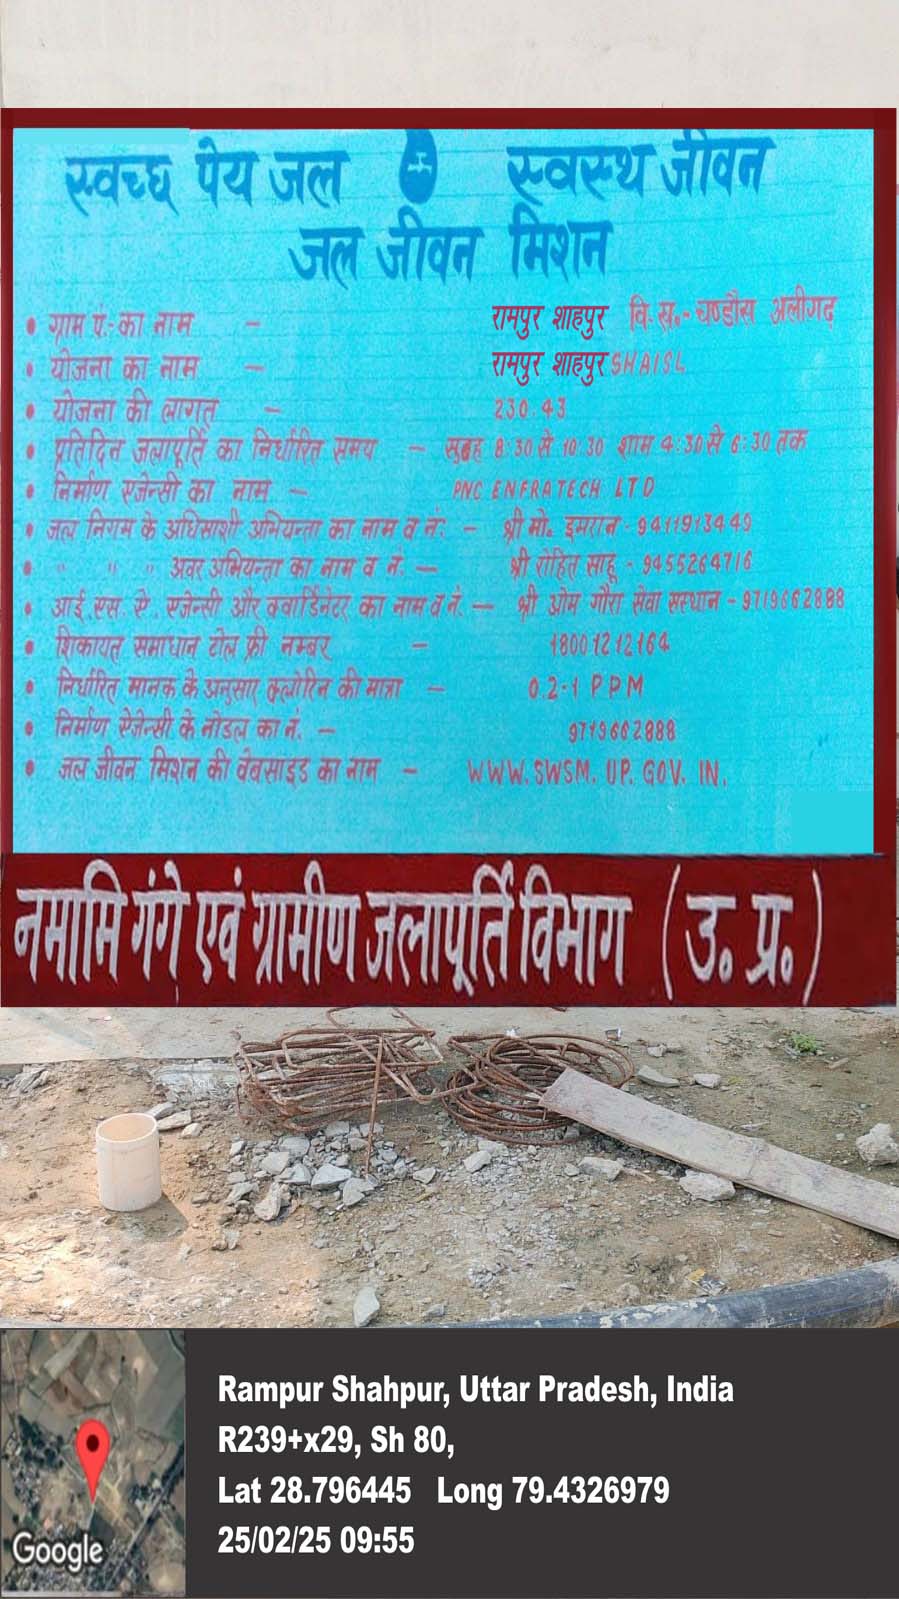 स्वच्छ पेय जल स्वस्थ जीवन
जल जीवन मिशन
• ग्राम पं:-का नाम - रामपुर शाहपुर वि.ख॰-चण्डौस अलीगढ़
• योजना का नाम - रामपुर शाहपुर SHAISL
• योजना की लागत - 230.43
• प्रतिदिन जलापूर्ति का निर्धारित समय - सुबह 8:30 से 10:30 शाम 4:30 से 6:30 तक
• निर्माण एजेन्सी का नाम - PNC ENFRATECH LTD
• जल निगम के अधिसाशी अभियन्ता का नाम व नं: - श्री मो॰ इमरान - 9411913449
• " " " अवर अभियन्ता का नाम व नं. - श्री रोहित साहू - 9455264716
• आई.एस.ऐ. एजेन्सी और क्वार्डिनेटर का नाम व नं. - श्री ओम गौरा सेवा सस्थान - 9719662888
• शिकायत समाधान टोल फ्री नम्बर - 18001212164
• निर्धारित मानक के अनुसार क्लोरिन की मात्रा - 0.2-1 PPM
• निर्माण ऐजेन्सी के नोडल का नं. - 9719662888
• जल जीवन मिशन की वेबसाइड का नाम - WWW.SWSM.UP.GOV.IN.
नमामि गंगे एवं ग्रामीण जलापूर्ति विभाग (उ॰प्र॰)
Rampur Shahpur, Uttar Pradesh, India
R239+x29, Sh 80,
Lat 28.796445 Long 79.4326979
25/02/25 09:55
Google